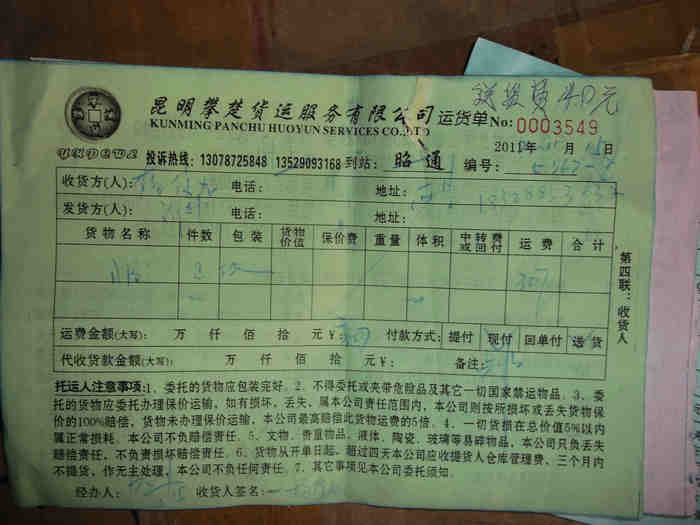 送货费40元
昆明攀楚货运服务有限公司 运货单 No: 0003549
KUNMING PANCHU HUOYUN SERVICES CO.,LTD
投诉热线：13078725848 13529093168 到站：昭通 编号：
收货方(人)： 电话： 地址：
发货方(人)： 电话： 地址：
货物名称 件数 包装 货物价值 保价费 重量 体积 中转费或回付 运费 合计
第四联：收货人
运费金额(大写)： 万 仟 佰 拾 元￥： 付款方式： 提付 现付 回单付 送货
代收货款金额(大写)： 万 仟 佰 拾 元￥： 备注：
托运人注意事项：1、委托的货物应包装完好。2、不得委托或夹带危险品及其它一切国家禁运物品。3、委
托的货物应委托办理保价运输，如有损坏、丢失、属本公司责任范围内，本公司则按所损坏或丢失货物保
价的100%赔偿，货物未办理保价运输，本公司最高赔偿此货物运费的5倍。4、一切货损在总价值5%以内
属正常损耗，本公司不负赔偿责任。5、文物、贵重物品、液体、陶瓷、玻璃等易碎物品，本公司只负丢失
赔偿责任，不负责损坏赔偿责任。6、货物从开单日起，超过四天本公司应收提货人仓库管理费，三个月内
不提货，作无主处理，本公司不负任何责任。7、其它事项见本公司委托须知。
经办人： 收货人签名：